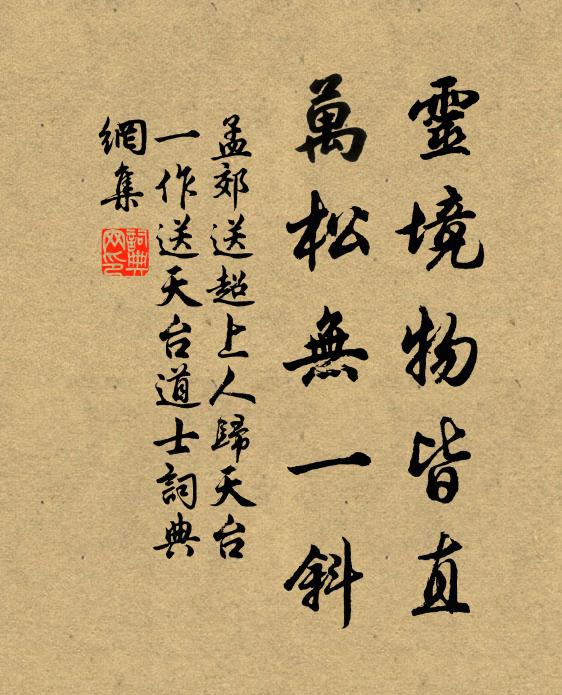 靈境物皆直
萬松無一斜
孟郊送超上人歸天台
一作送天台道士詞典
網集
詞典網印